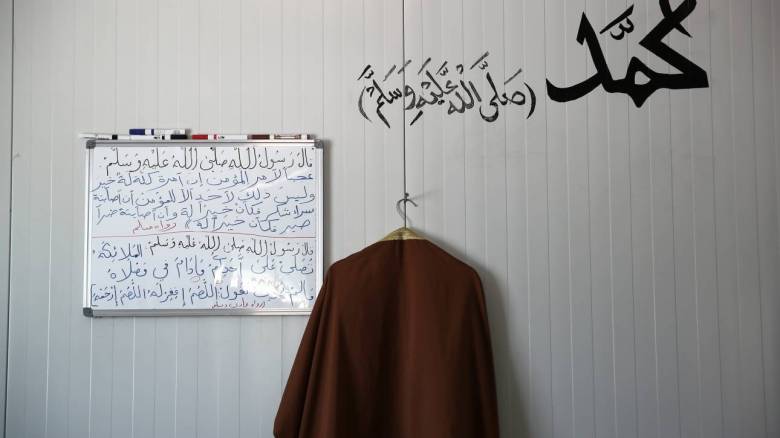 محمد
(صَلَّى اللَّهُ عَلَيْهِ وَسَلَّمَ)
قال رَسُولُ اللَّهِ صَلَّى اللهُ عَلَيْهِ وَسَلَّمَ:
عجبا لأمر المؤمن إن أمره كله له خير
وليس ذلك لأحد إلا للمؤمن إن أصابته
سراء شكر فكان خيرا له وإن أصابته ضراء
صبر فكان خيرا له رواه مسلم
قال رسول الله صلى الله عليه وسلم: الملائكة
تُصلي على أحدكم مادام في مصلاه
مالم يحدث تقول: اللهُمَّ اغفرله، اللهُمَّ ارْحَمْهُ
رواه